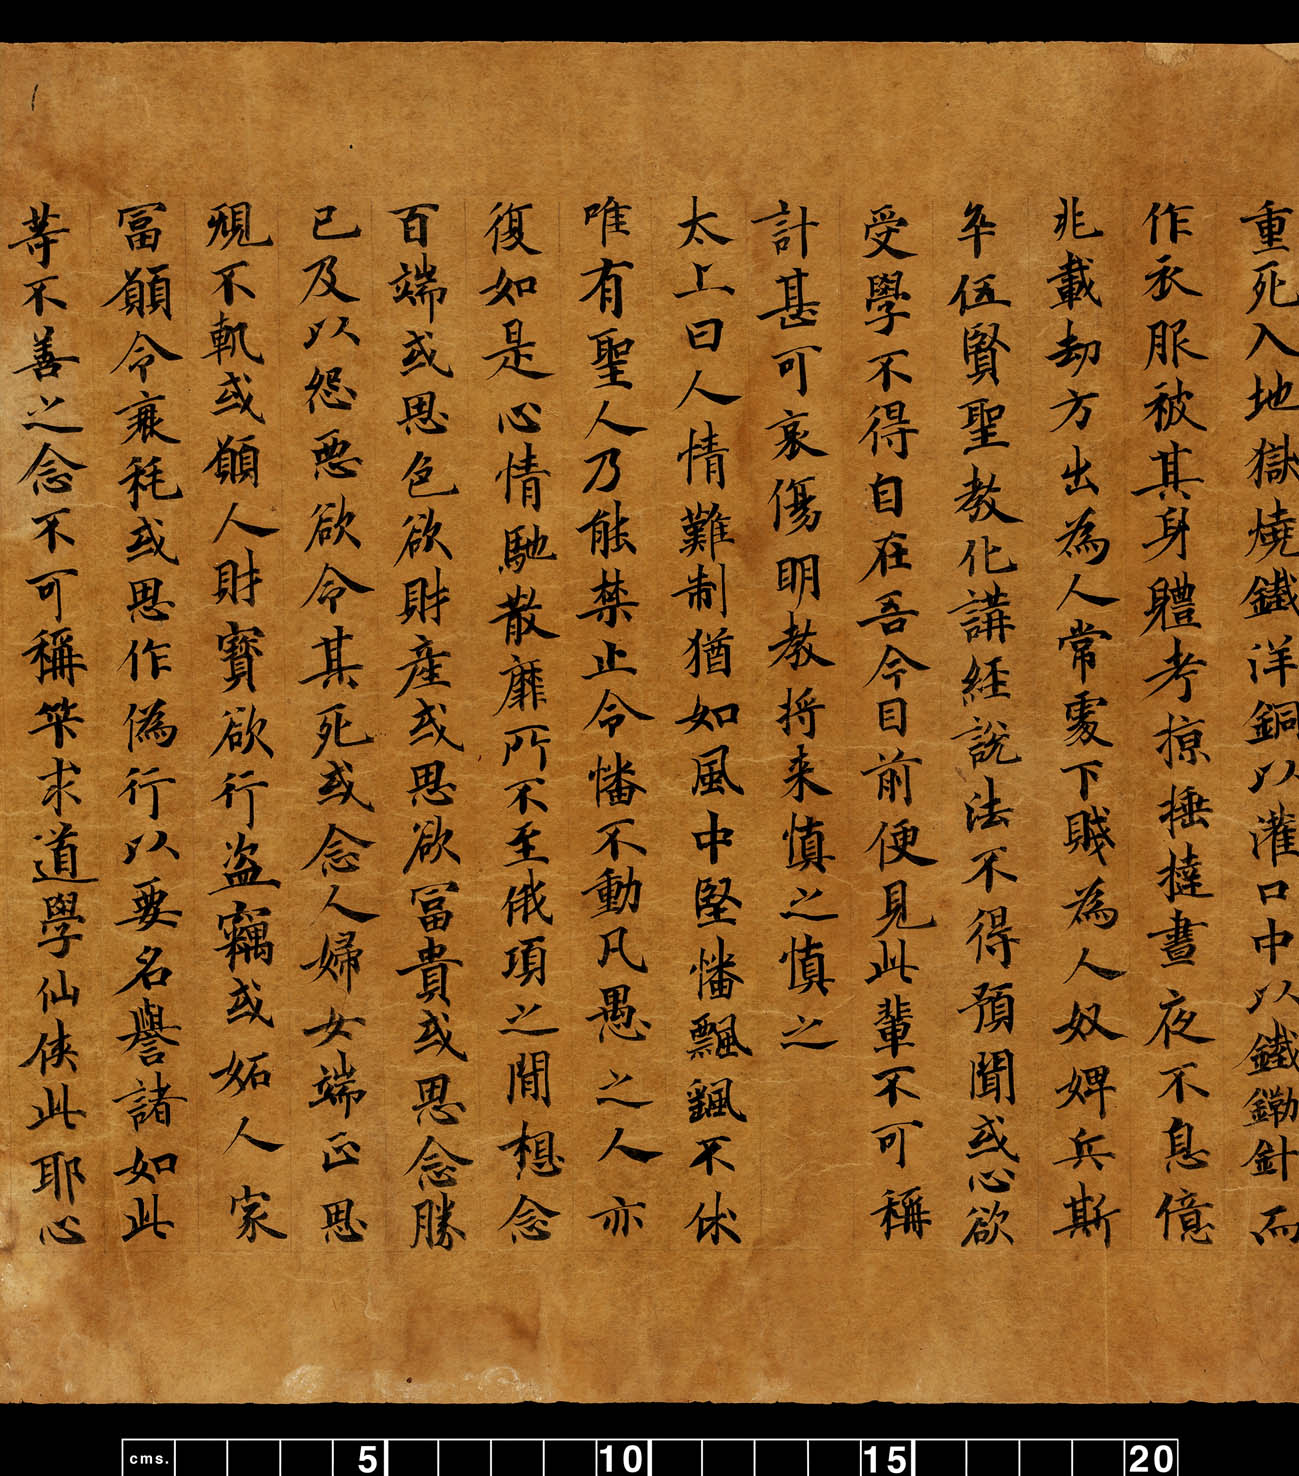 重死入地獄燒鐵洋銅以灌口中以鐵鏘針而
作衣服被其身體考掠捶撻晝夜不息億
兆載劫方出為人常處下賤為人奴婢兵斯
卒伍賢聖教化講經說法不得預聞或心欲
受學不得自在吾今目前便見此輩不可稱
計甚可哀傷明教将来慎之慎之
太上曰人情難制猶如風中堅憣飄颻不休
唯有聖人乃能禁止令憣不動凡愚之人亦
復如是心情馳散靡所不至俄項之間想念
百端或思色欲財産或思欲冨貴或思念勝
已及以怨惡欲令其死或念人婦女端正思
覜不軌或願人財寳欲行盗竊或妬人家
冨願令衰秏或思作偽行以要名譽諸如此
等不善之念不可稱笇求道學仙侠此耶心
5
10
15
20
cms.